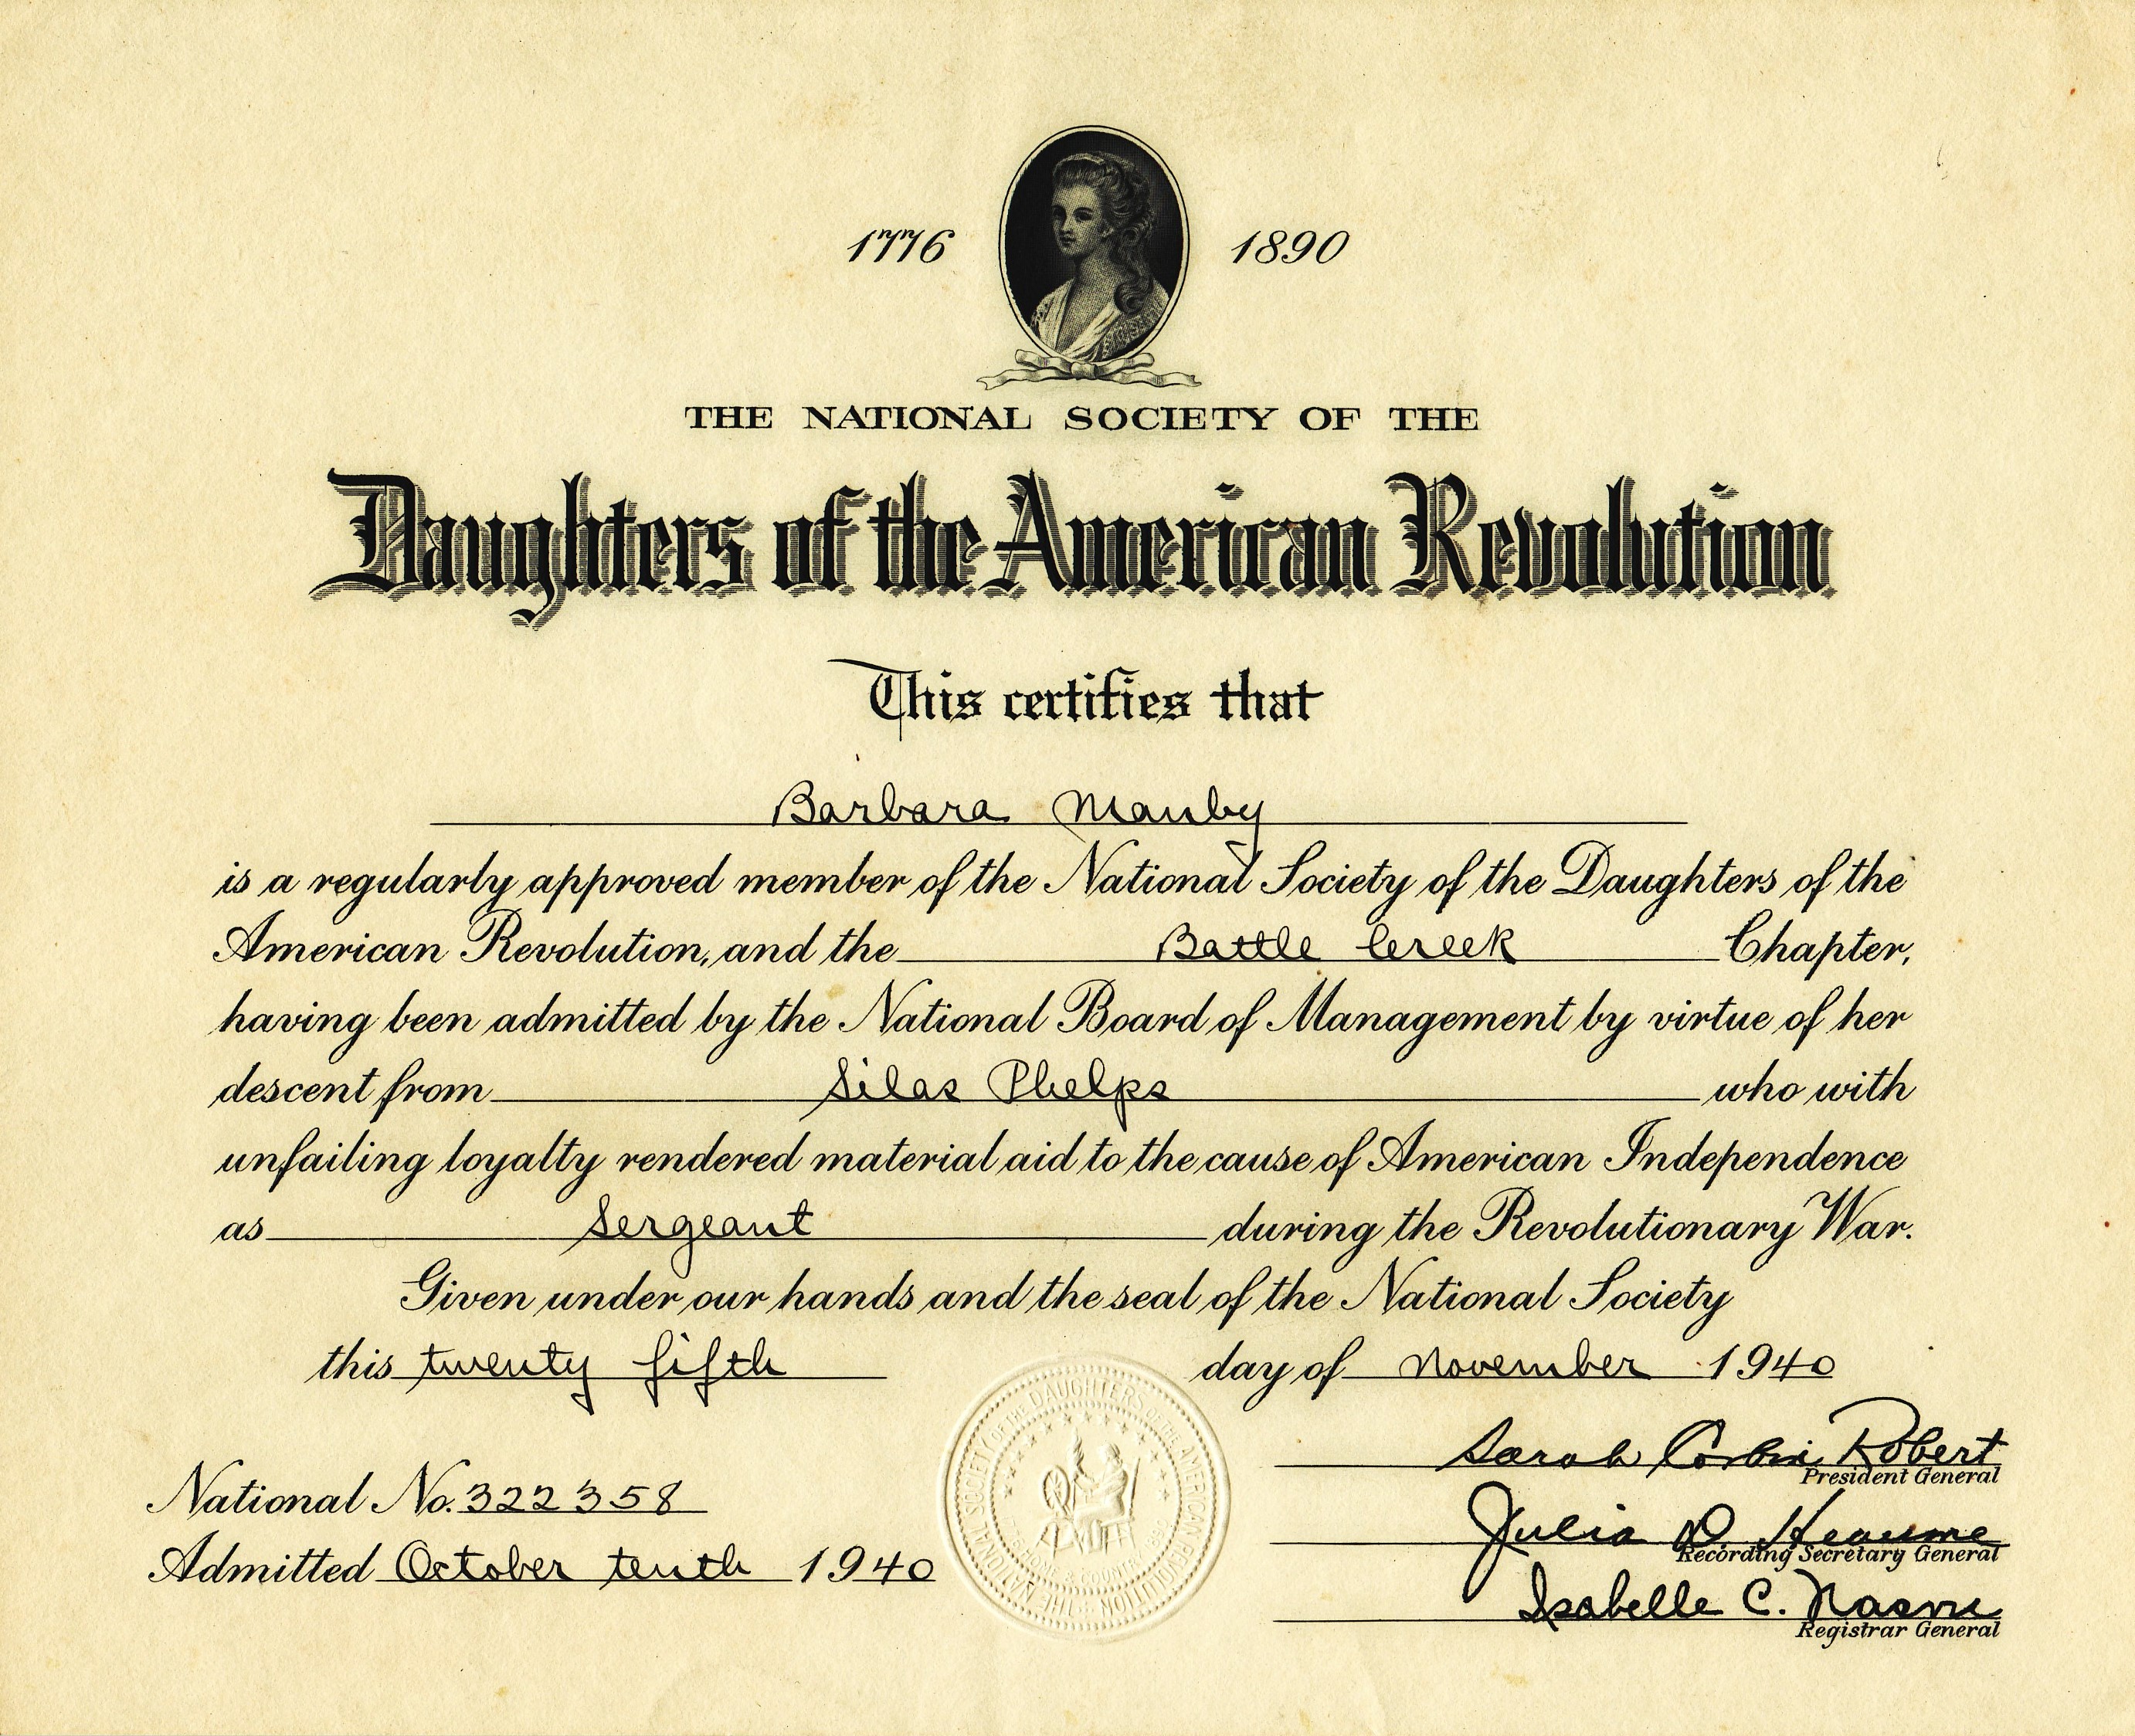 1776 1890
THE NATIONAL SOCIETY OF THE
Daughters of the American Revolution
This certifies that
Barbara Manby
is a regularly approved member of the National Society of the Daughters of the
American Revolution, and the Battle Creek Chapter,
having been admitted by the National Board of Management by virtue of her
descent from Silas Phelps who with
unfailing loyalty rendered material aid to the cause of American Independence
as Sergeant during the Revolutionary War.
Given under our hands and the seal of the National Society
this twenty fifth day of November 1940
Sarah Corbin Robert
President General
National No. 322358
Julia D. Heaume
Recording Secretary General
Admitted October tenth 1940
Isabelle C. Nason
Registrar General
THE NATIONAL SOCIETY OF THE DAUGHTERS OF THE AMERICAN REVOLUTION
HOME & COUNTRY